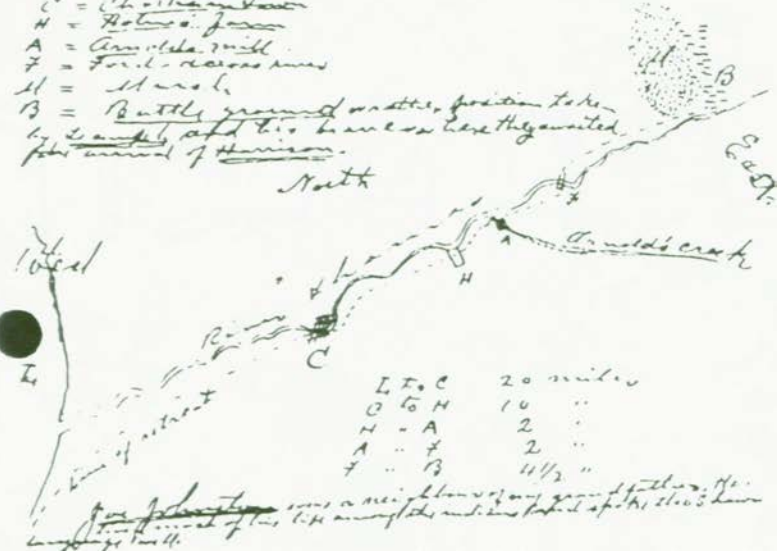 C = Chatham town
H = Holmes' farm
A = Arnolds mill
F = Ford across river
M = Marsh
B = Battle ground or rather position taken
by and his braves where they awaited
the arrival of Harrison.
M
B
North
East
F
A
Arnold's creek
H
West
River Thames
C
L
Line of retreat
L to C 20 miles
C to H 10 "
H " A 2 "
A " F 2 "
F " B 4 1/2 "
Joe Johnston was a neighbour of my grandfather. He
lived most of his life among the indians and spoke the Shawn
language well.